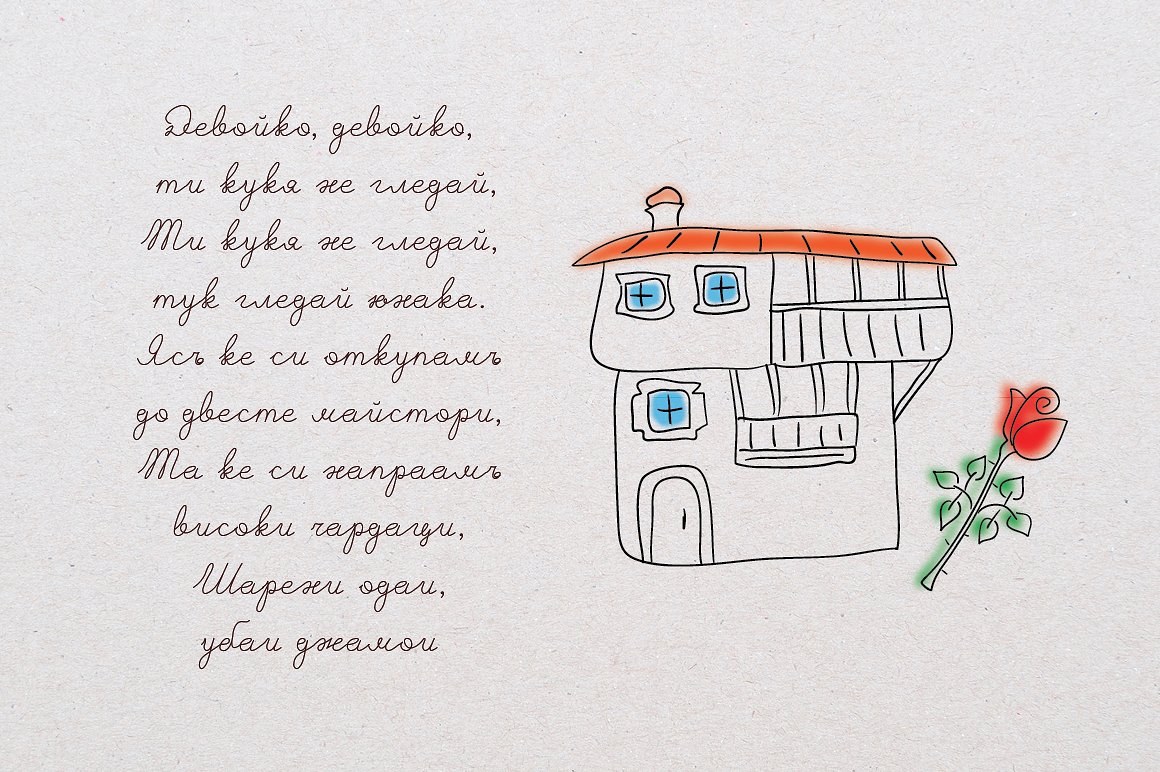 Девойко, девойко,
ти кукя не гледай,
Ти кукя не гледай,
тук гледай южака.
Ясъ ке си откупамъ
до двесте майстори,
Та ке си напраамъ
високи чардаци,
Шарени одаи,
убаи джамои